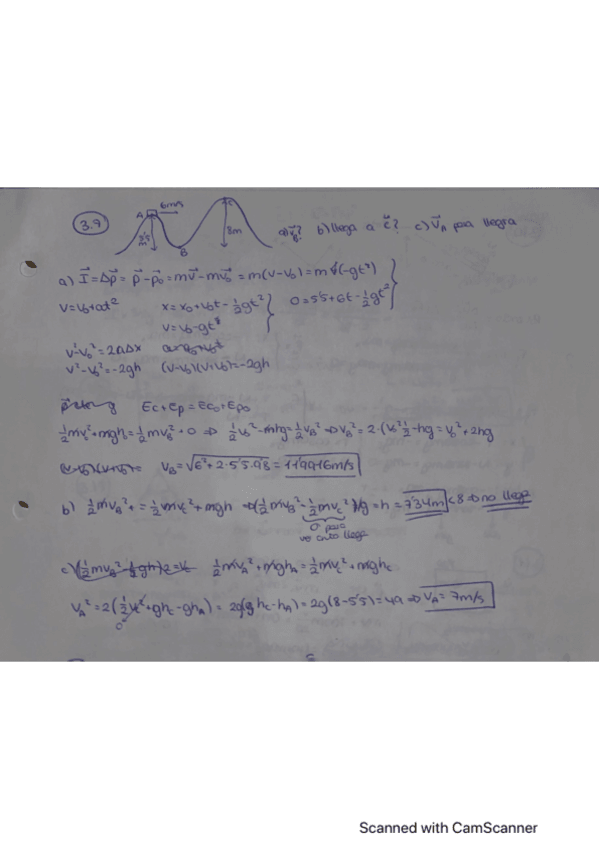 3.9 A 6m/s 5'5m B C 8m a) v⃗B? b) llega a C? c) v⃗A para llegar a
a) I⃗ = Δp⃗ = p⃗ - p⃗₀ = mv⃗ - mv⃗₀ = m(v-v₀) = m(-gt²)
v = v₀ + at² x = x₀ + v₀t - ½gt² 0 = 5'5 + 6t - ½gt²
v = v₀ - gt²
v² - v₀² = 2aΔx
v² - v₀² = -2gh (v-v₀)(v+v₀) = -2gh
Ec + Ep = Ec₀ + Ep₀
½mv₀² + mgh = ½mvB² + 0 ⇒ ½v₀² - hg = ½vB² ⇒ vB² = 2·(v₀²½ - hg = v₀² + 2hg
VB = √6² + 2·5'5·9'8 = 11'9916m/s
b) ½mvB² + = ½mvc² + mgh ⇒ (½mvB² - ½mvc²)/g = h = 7'34m < 8 ⇒ no llega
0 para
ver cuanto llega
c) (½mvB² - ½gh)2 = vc ½mvA² + mghA = ½mvc² + mghc
VA² = 2(½vc² + ghc - ghA) = 2g(hc - hA) = 2g(8 - 5'5) = 49 ⇒ VA = 7m/s
0
Scanned with CamScanner